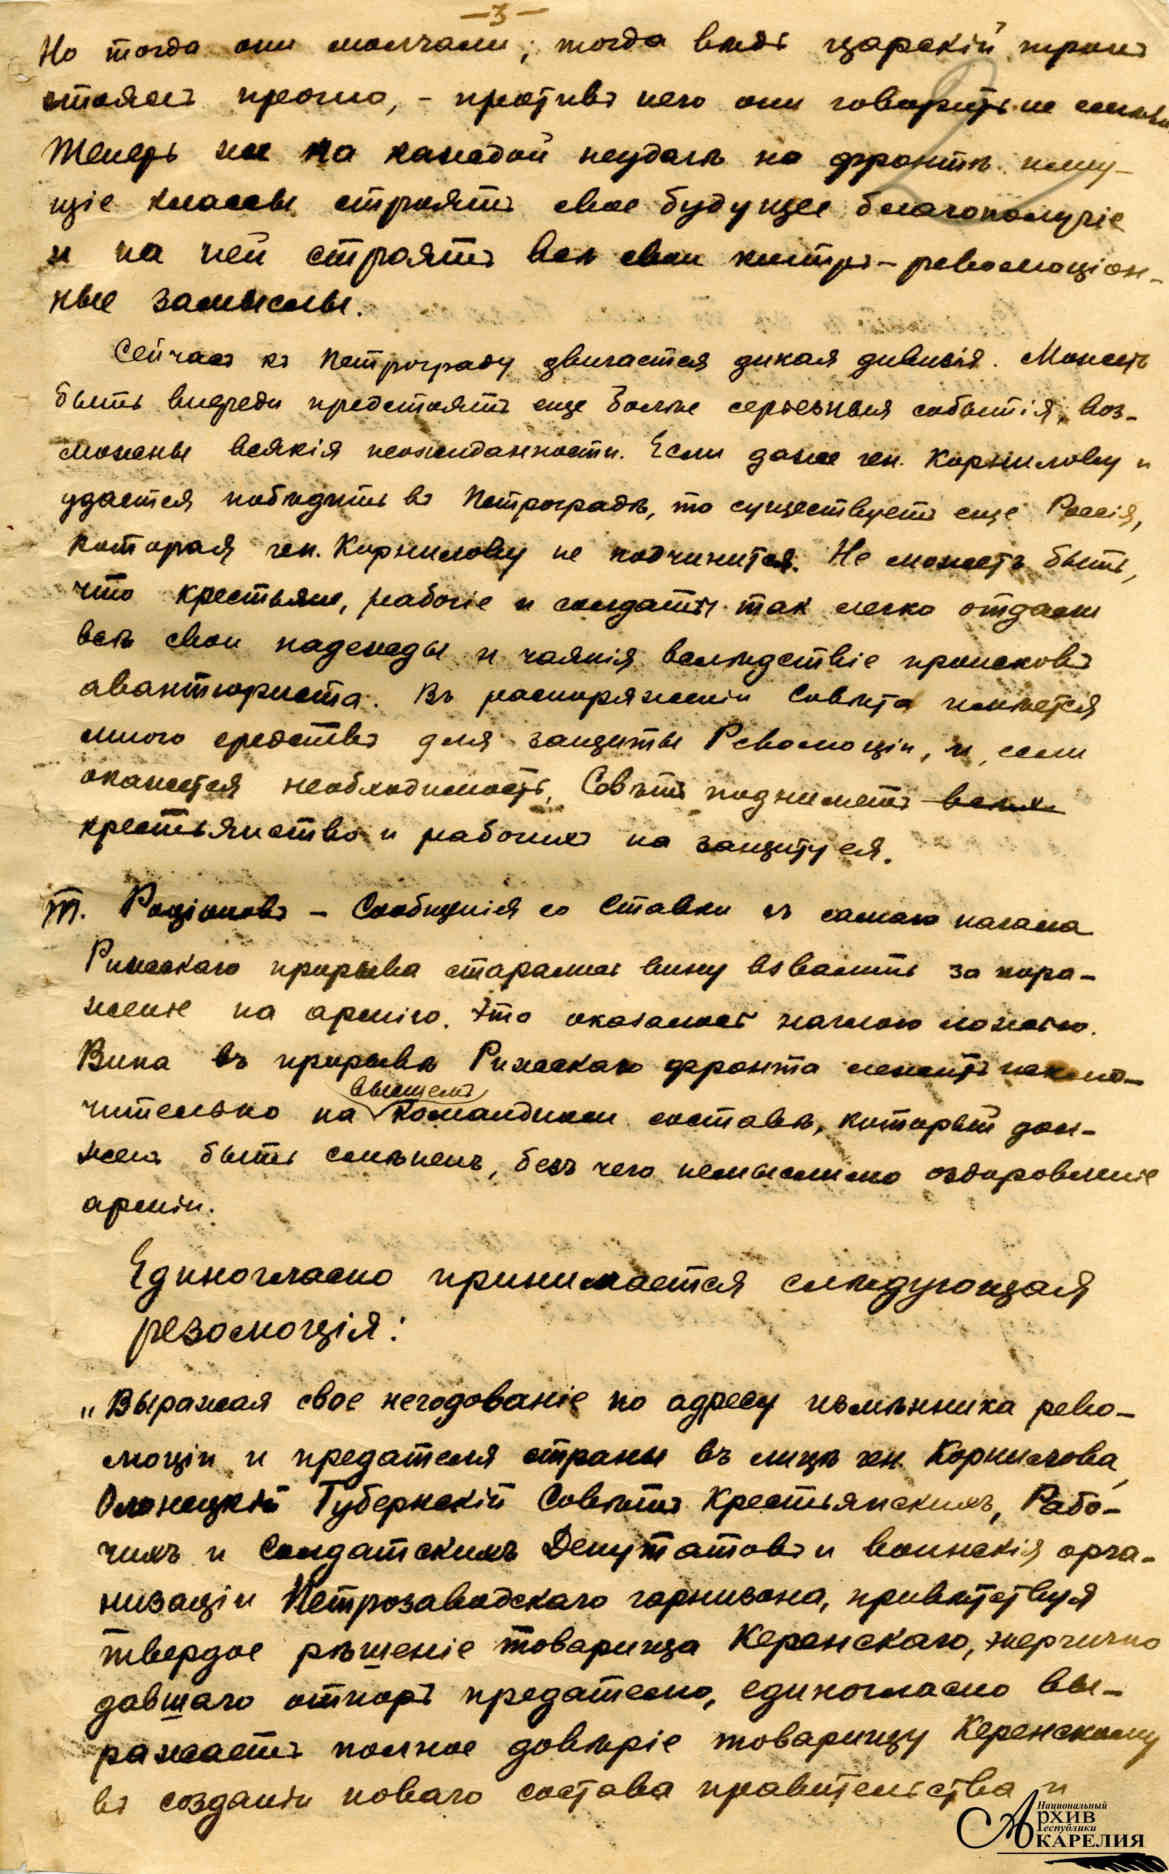 -3-
Но тогда они молчали, тогда ведь царскій тронъ
стоялъ прочно, - противъ него они говорить не смѣли
Теперь же на каждой неудачѣ на фронтѣ иму-
щіе классы строятъ свое будущее благополучіе
и на ней строятъ всѣ свои контръ-революціон-
ные замыслы.
Сейчасъ къ Петрограду двигается дикая дивизія. Можетъ
быть впереди предстоятъ еще болѣе серьезныя событія, воз-
можны всякія неожиданности. Если даже ген. Корнилову и
удастся побѣдить въ Петроградѣ, то существуетъ еще Россія,
которая ген. Корнилову не подчинится. Не можетъ быть,
что крестьяне, рабочіе и солдаты так легко отдали
всѣ свои надежды и чаянія вслѣдствіе происковъ
авантюриста. Въ распоряженіи Совѣта имѣется
много средствъ для защиты Революціи, и, если
окажется необходимость, Совѣтъ подниметъ всѣхъ
крестьянство и рабочихъ на защиту ея.
Т. Родіоновъ - Сообщенія со Ставки съ самаго начала
Рижскаго прорыва старались вину взвалить за пора-
женіе на армію. Это оказалось наглою ложью.
Вина въ прорывѣ Рижскаго фронта лежитъ исклю-
высшемъ
чительно на командномъ составѣ, который дол-
женъ быть смѣненъ, безъ чего немыслимо оздоровленіе
арміи.
Единогласно принимается слѣдующая
резолюція:
„Выражая свое негодованіе по адресу измѣнника рево-
люціи и предателя страны въ лицѣ ген. Корнилова,
Олонецкій Губернскій Совѣтъ Крестьянскихъ, Рабо-
чихъ и Солдатскихъ Депутатовъ и воинскія орга-
низаціи Петрозаводскаго гарнизона, привѣтствуя
твердое рѣшеніе товарища Керенскаго, энергично
давшаго отпоръ предателю, единогласно вы-
ражаетъ полное довѣріе товарищу Керенскому
въ созданіи новаго состава правительства и
Национальный
АРХИВ
Республики
КАРЕЛИЯ